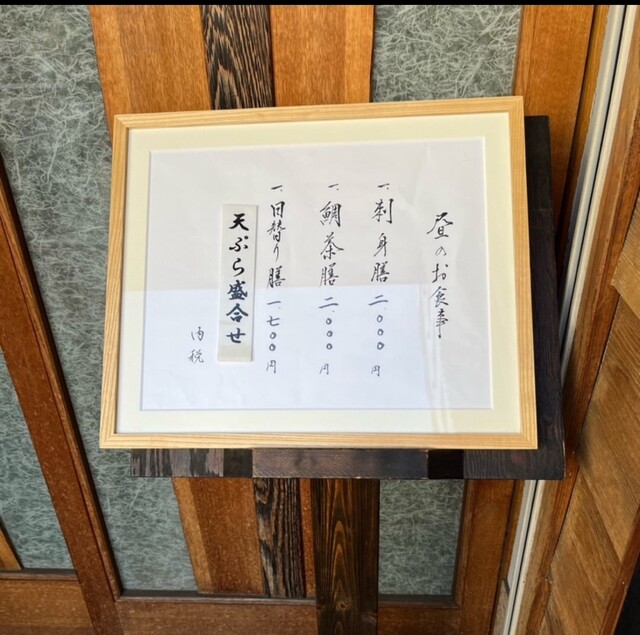 昼のお食事
一、刺身膳 二、〇〇〇円
一、鯛茶膳 二、〇〇〇円
一、日替り膳 一、七〇〇円
天ぷら盛合せ
内税